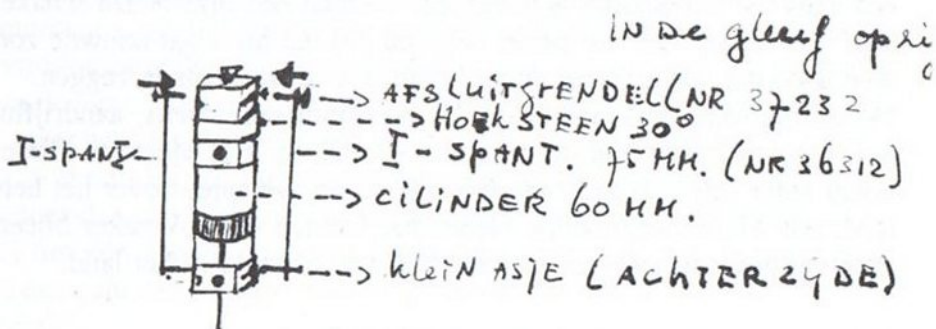 IN DE gleuf op
AFSLUITGRENDEL (NR 37232
HOEKSTEEN 30°
I-SPANT-
I-SPANT. 75 MM. (NR 36312)
CILINDER 60 MM.
KLEIN ASJE (ACHTERZYDE)